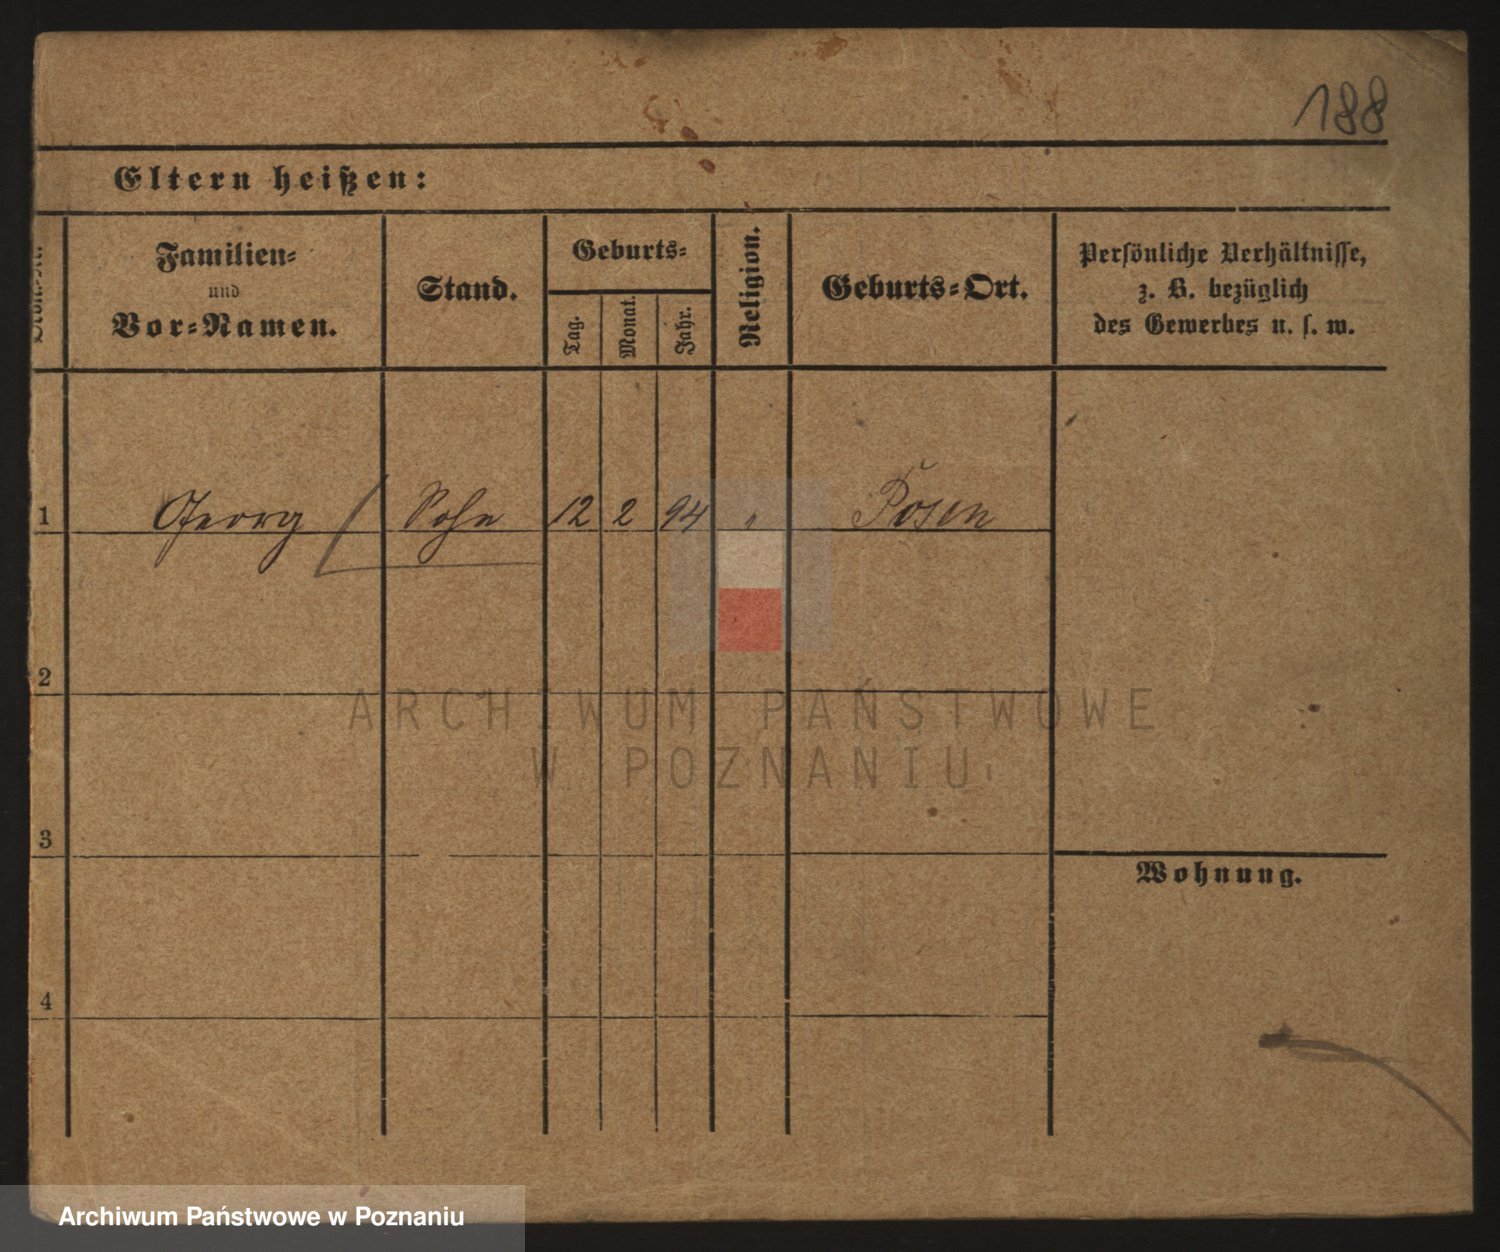 188
Eltern heißen:
Familien-
und
Vor-Namen.
Stand.
Geburts-
Tag.
Monat.
Jahr.
Religion.
Geburts-Ort.
Persönliche Verhältnisse,
z. B. bezüglich
des Gewerbes u. s. w.
1 Georg Sohn 12 2 94 " Posen
2
ARCHIWUM PAŃSTWOWE
W POZNANIU
3
Wohnung.
4
Archiwum Państwowe w Poznaniu